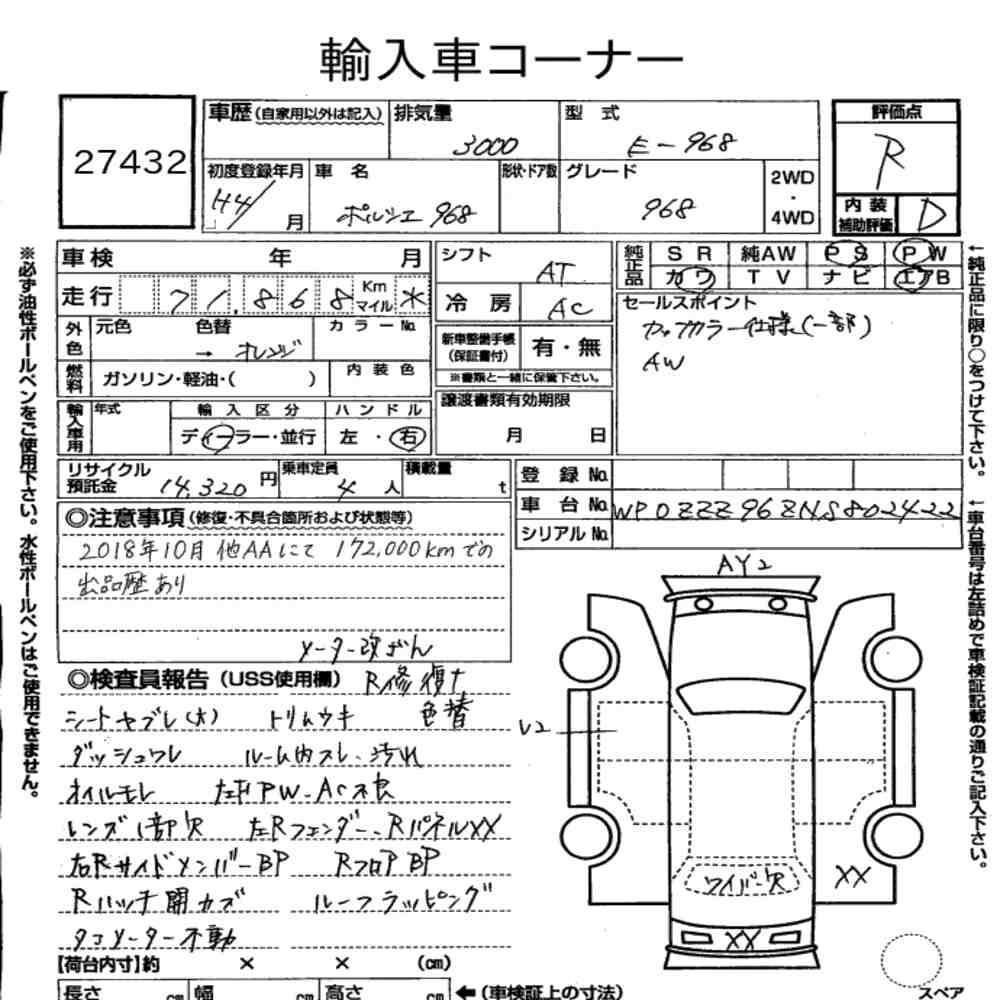 輸入車コーナー
27432
車歴(自家用以外は記入) 排気量 3000 型式 E-968 評価点 R
初度登録年月 H4/ 月 車名 ポルシェ 968 形状・ドア数 グレード 968 2WD・4WD 内装補助評価 D
車検 年 月
走行 71,868 Km マイル ※
外色 元色 色替 → オレンジ カラーNo.
燃料 ガソリン・軽油・( ) 内装色
輸入車用 年式 輸入区分 ディーラー・並行 ハンドル 左・右
シフト AT
冷房 AC
新車整備手帳(保証書付) 有・無
※書類と一緒に保管下さい。
譲渡書類有効期限
月 日
純正品 SR 純AW PS PW
カワ TV ナビ エアB
セールスポイント
カップカラー仕様(一部)
AW
リサイクル預託金 14,320 円 乗車定員 4 人 積載量 t
登録No.
車台No. WP0ZZZ96ZNS802422
シリアルNo.
◎注意事項(修復・不具合箇所および状態等)
2018年10月 他AAにて 172,000kmでの
出品歴あり
メーター改ざん
◎検査員報告(USS使用欄) R修復
シートヤブレ(大) トリムウキ 色替
ダッシュワレ ルーム内スレ、汚れ
オイルモレ PW、AC不良
レンズ1部欠 左Rフェンダー、RパネルXX
右RサイドメンバーBP RフロアBP
Rハッチ開カズ ルーフラッピング
タコメーター不動
【荷台内寸】約 × × (cm)
長さ cm 幅 cm 高さ cm ←(車検証上の寸法)
AY2
ワイパー欠
XX
XX
スペア
※必ず油性ボールペンをご使用下さい。水性ボールペンはご使用できません。
←純正品に限り○をつけて下さい。
←車台番号は左詰めで車検証記載の通りご記入下さい。